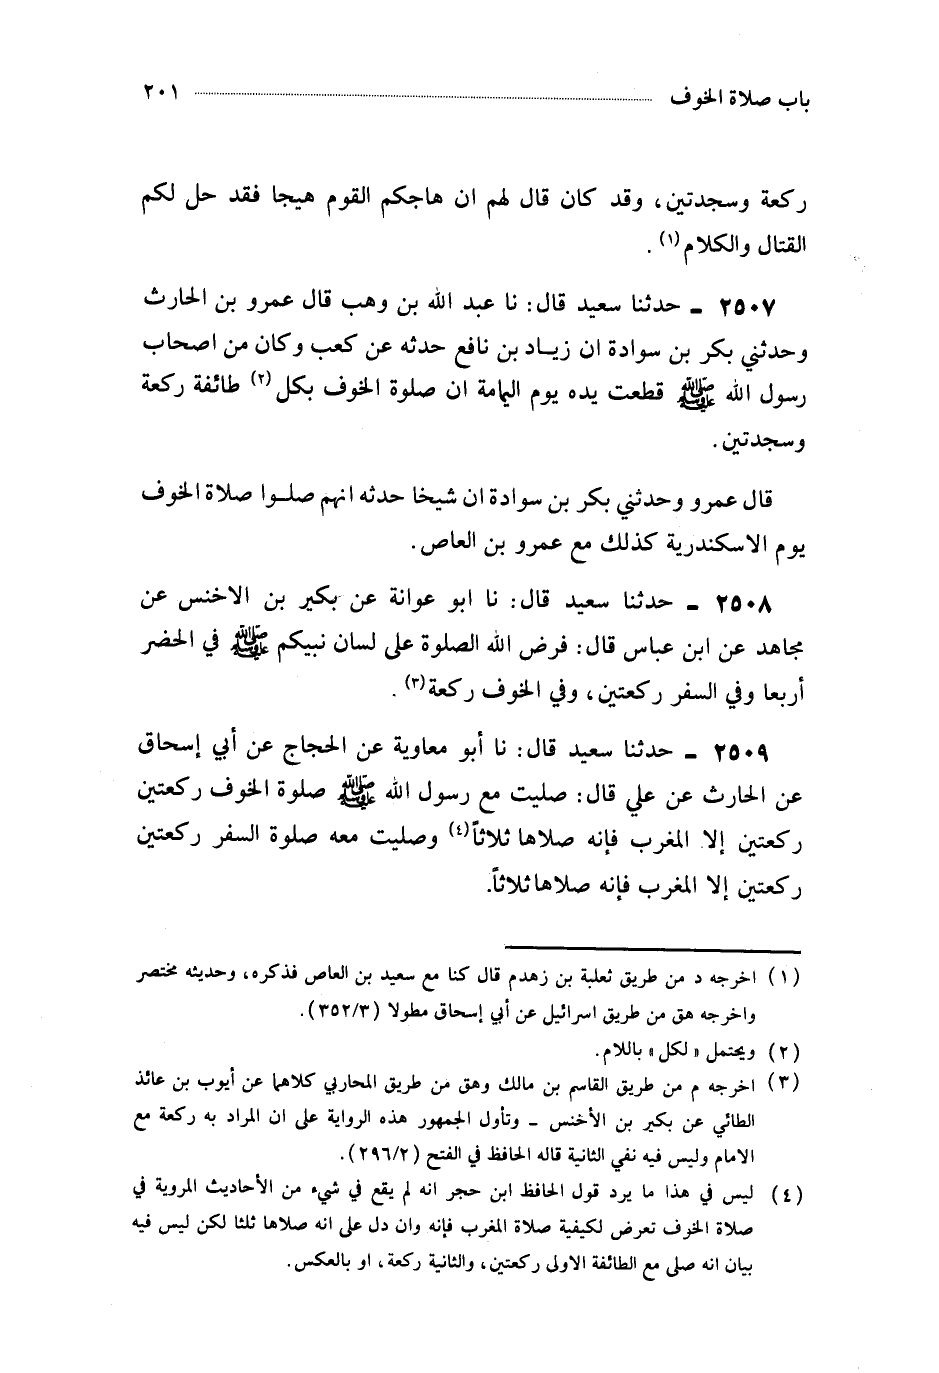 باب صلاة الخوف ٢٠١
ركعة وسجدتين، وقد كان قال لهم ان هاجكم القوم هيجا فقد حل لكم
القتال والكلام(١).
٢٥٠٧ ـ حدثنا سعيد قال: نا عبد الله بن وهب قال عمرو بن الحارث
وحدثني بكر بن سوادة ان زياد بن نافع حدثه عن كعب وكان من اصحاب
رسول الله ﷺ قطعت يده يوم اليمامة ان صلوة الخوف بكل(٢) طائفة ركعة
وسجدتين.
قال عمرو وحدثني بكر بن سوادة ان شيخا حدثه انهم صلوا صلاة الخوف
يوم الاسكندرية كذلك مع عمرو بن العاص.
٢٥٠٨ ـ حدثنا سعيد قال: نا ابو عوانة عن بكير بن الاخنس عن
مجاهد عن ابن عباس قال: فرض الله الصلوة على لسان نبيكم ﷺ في الحضر
أربعا وفي السفر ركعتين، وفي الخوف ركعة(٣).
٢٥٠٩ ـ حدثنا سعيد قال: نا أبو معاوية عن الحجاج عن أبي إسحاق
عن الحارث عن علي قال: صليت مع رسول الله ﷺ صلوة الخوف ركعتين
ركعتين إلا المغرب فإنه صلاها ثلاثاً(٤) وصليت معه صلوة السفر ركعتين
ركعتين إلا المغرب فإنه صلاها ثلاثاً.
(١) اخرجه د من طريق ثعلبة بن زهدم قال كنا مع سعيد بن العاص فذكره، وحديثه مختصر
واخرجه هق من طريق اسرائيل عن أبي إسحاق مطولا (٣٥٢/٣).
(٢) ويحتمل «لكل» باللام.
(٣) اخرجه م من طريق القاسم بن مالك وهق من طريق المحاربي كلاهما عن أيوب بن عائذ
الطائي عن بكير بن الأخنس ـ وتأول الجمهور هذه الرواية على ان المراد به ركعة مع
الامام وليس فيه نفي الثانية قاله الحافظ في الفتح (٢٩٦/٢).
(٤) ليس في هذا ما يرد قول الحافظ ابن حجر انه لم يقع في شيء من الأحاديث المروية في
صلاة الخوف تعرض لكيفية صلاة المغرب فإنه وان دل على انه صلاها ثلثا لكن ليس فيه
بيان انه صلى مع الطائفة الاولى ركعتين، والثانية ركعة، او بالعكس.